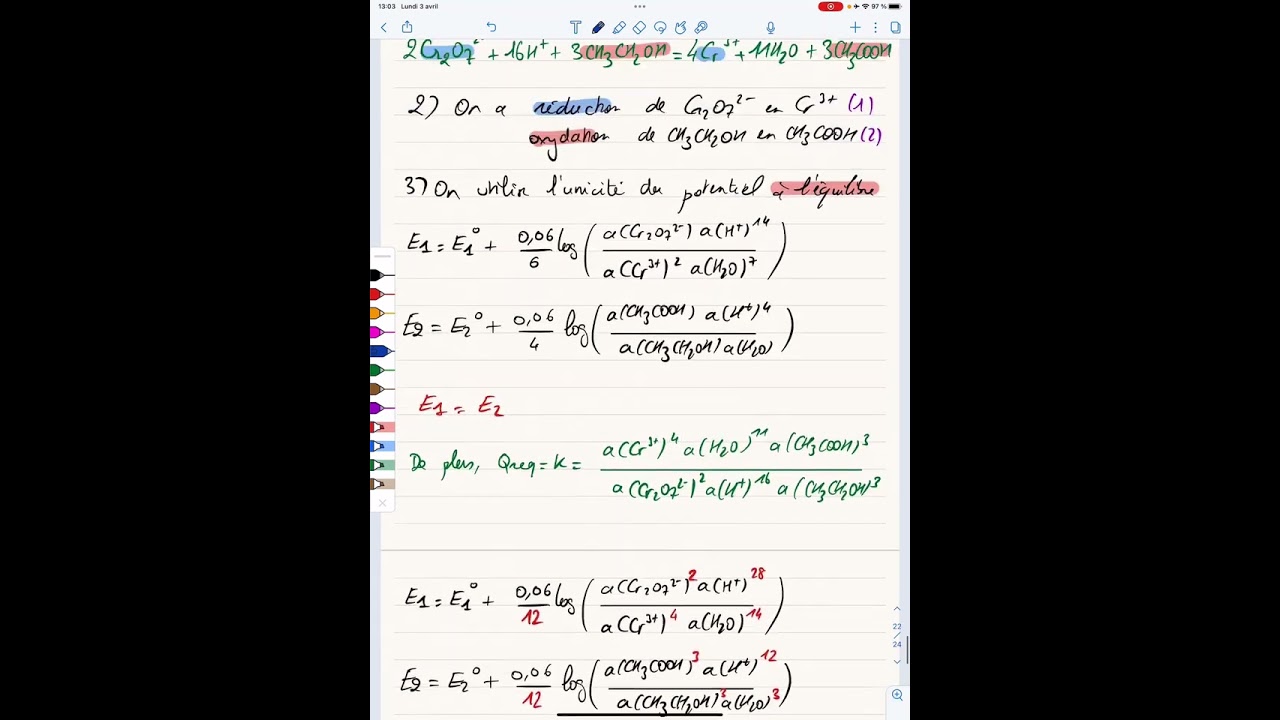 13:03 Lundi 3 avril
97 %
2Cr₂O₇²⁻ + 16H⁺ + 3CH₃CH₂OH = 4Cr³⁺ + 11H₂O + 3CH₃COOH
2) On a réduction de Cr₂O₇²⁻ en Cr³⁺ (1)
oxydation de CH₃CH₂OH en CH₃COOH (2)
3) On utilise l'unicité du potentiel à l'équilibre
E1 = E1° + 0,06/6 log( a(Cr₂O₇²⁻) a(H⁺)¹⁴ / a(Cr³⁺)² a(H₂O)⁷ )
E2 = E2° + 0,06/4 log( a(CH₃COOH) a(H⁺)⁴ / a(CH₃CH₂OH) a(H₂O) )
E1 = E2
De plus, Qreq = K = a(Cr³⁺)⁴ a(H₂O)¹¹ a(CH₃COOH)³ / a(Cr₂O₇²⁻)² a(H⁺)¹⁶ a(CH₃CH₂OH)³
E1 = E1° + 0,06/12 log( a(Cr₂O₇²⁻)² a(H⁺)²⁸ / a(Cr³⁺)⁴ a(H₂O)¹⁴ )
E2 = E2° + 0,06/12 log( a(CH₃COOH)³ a(H⁺)¹² / a(CH₃CH₂OH)³ a(H₂O)³ )
22
24